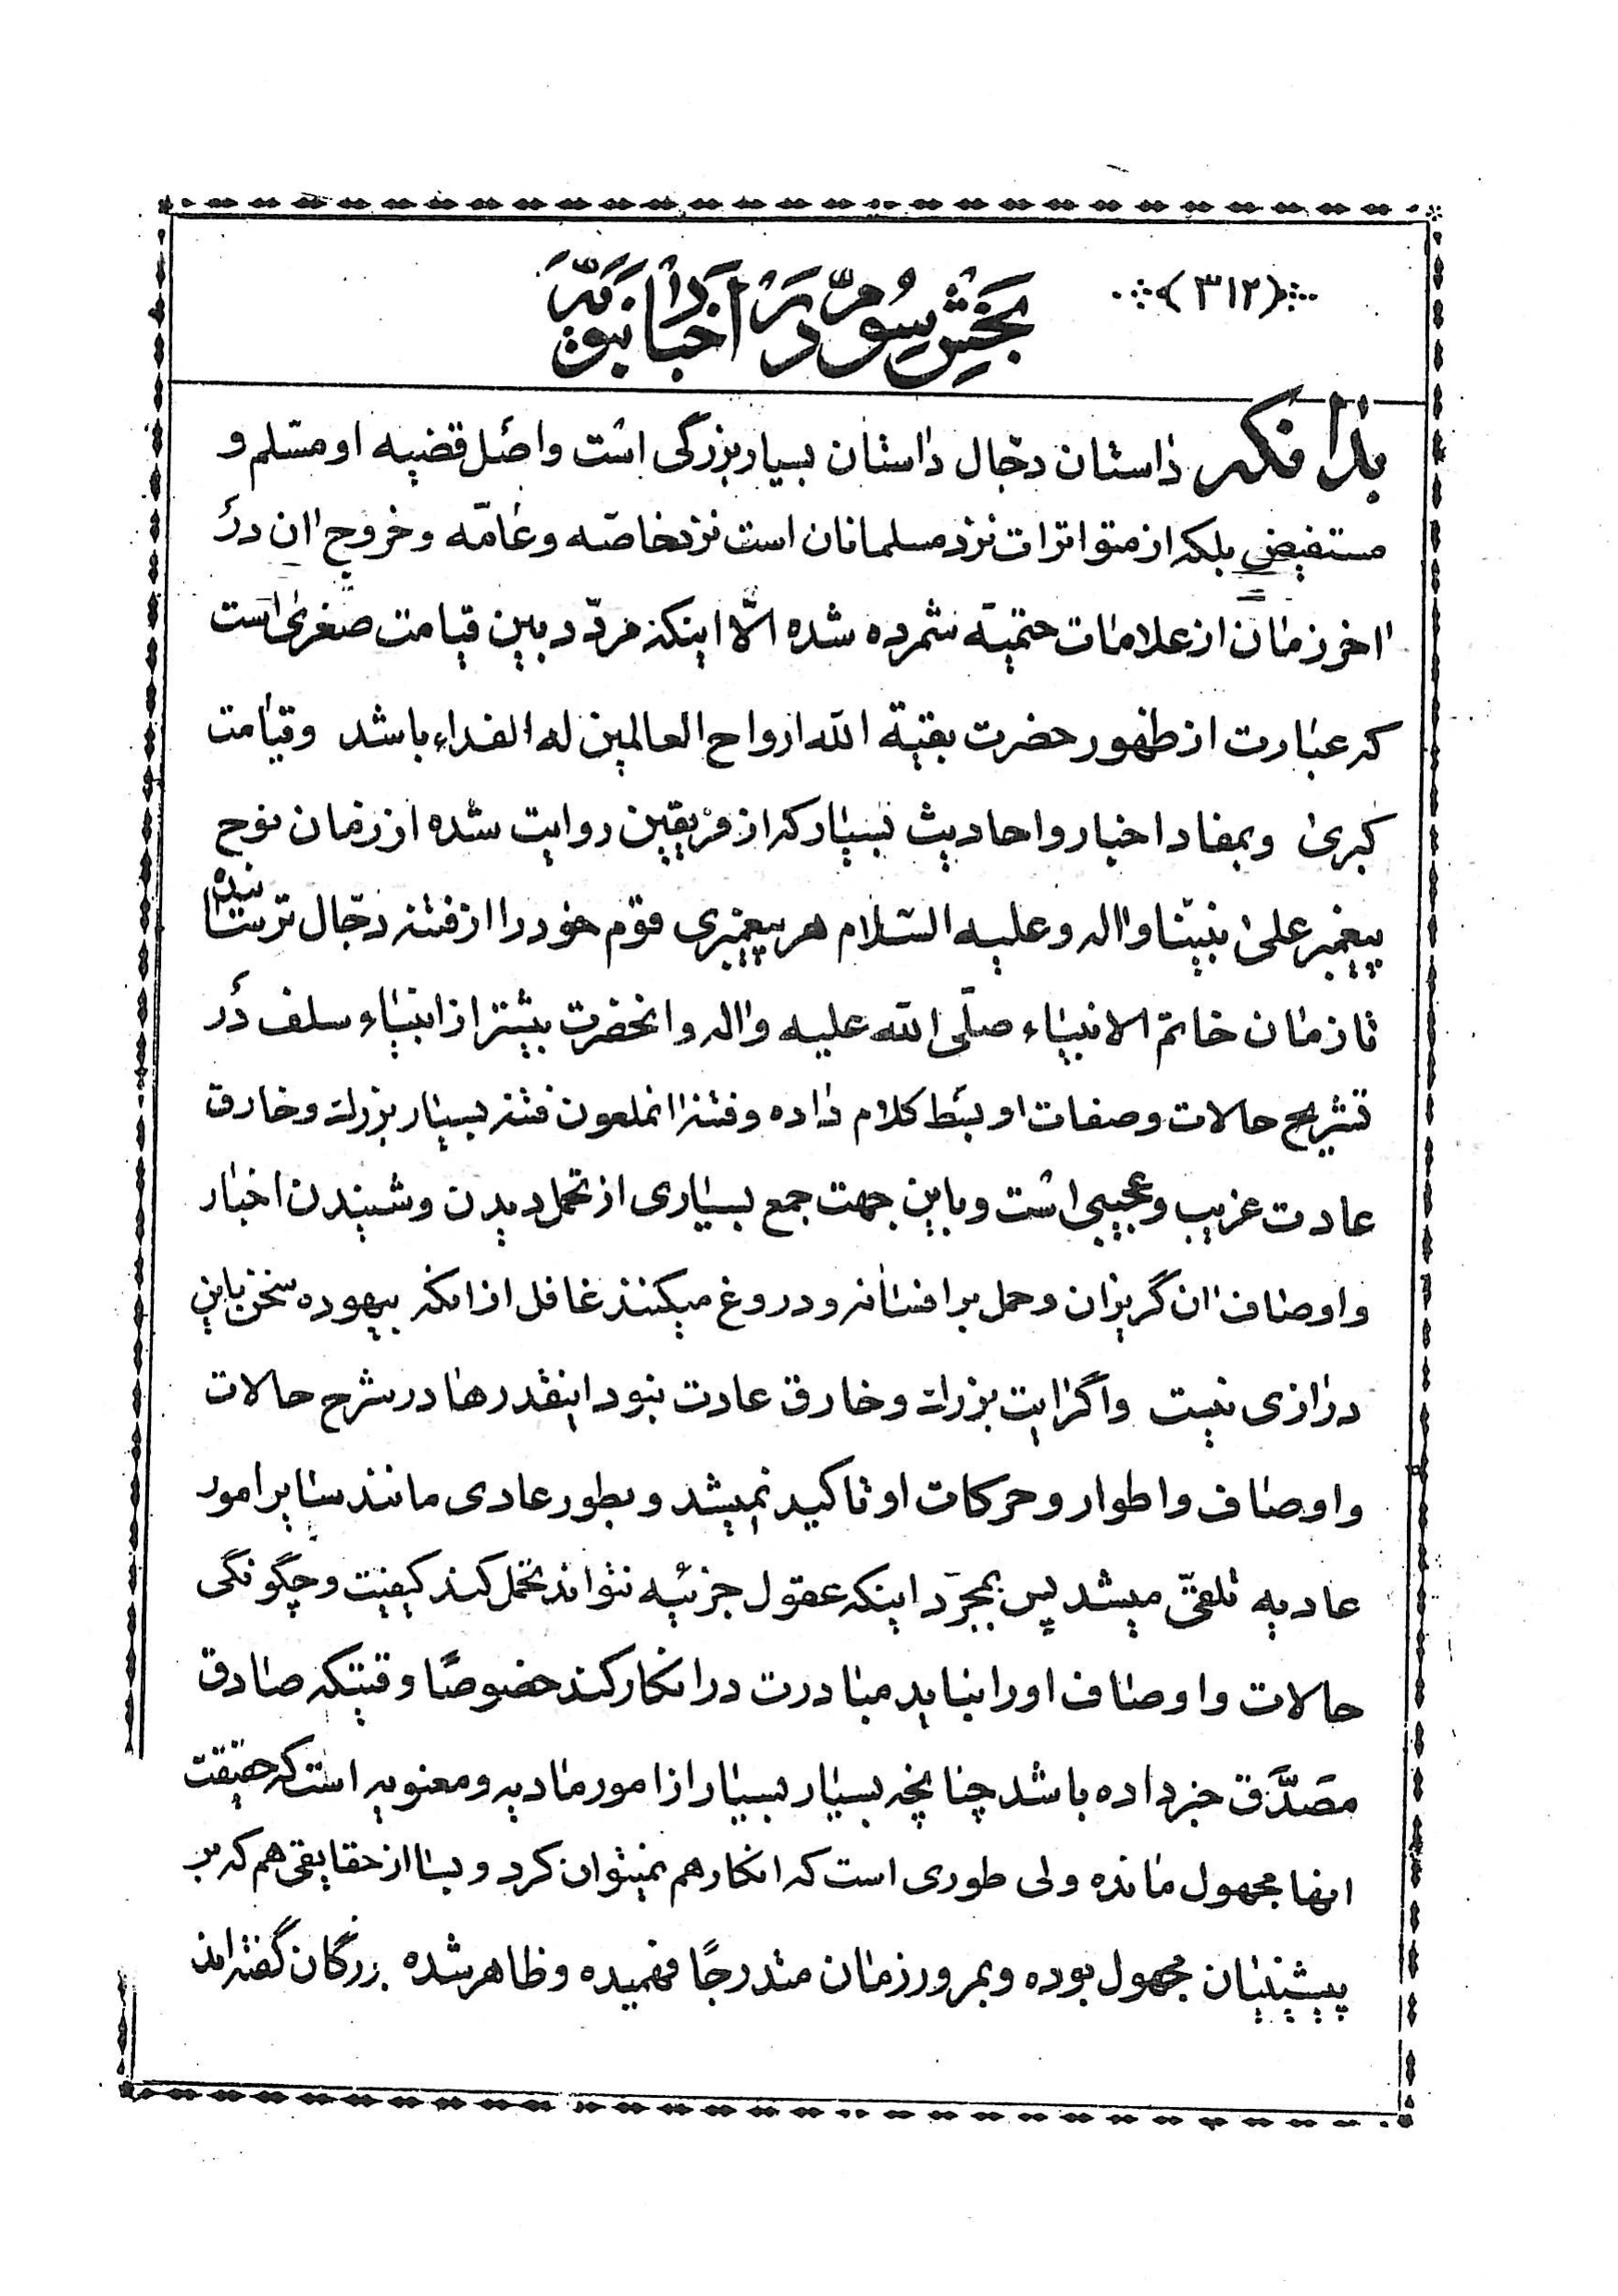 (۳۱۲)
بخش سوم در اخبار نبویه
بدانکه داستان دجّال داستان بسیار بزرگی است و اصل قضیه او مسلم و
مستفیض بلکه از متواترات نزد مسلمانان است نزد خاصّه و عامّه و خروج اان در
ااخر زمان از علامات حتمیّه شمرده شده الّا اینکه مردّد بین قیامت صغری است
که عبارت از ظهور حضرت بقیة الله ارواح العالمین له الفداء باشد و قیامت
کبری و بمفاد اخبار و احادیث بسیار که از فریقین روایت شده از زمان نوح
پیغمبر علی نبیّنا و االه و علیه السّلام هر پیغمبری قوم خود را از فتنه دجّال ترسانیده
تا زمان خاتم الانبیاء صلّی الله علیه و االه و انحضرت بیشتر از انبیاء سلف در
تشریح حالات و صفات او بسط کلام داده و فتنه اانملعون فتنه بسیار بزرك و خارق
عادت غریب و عجیبی است و باین جهت جمع بسیاری از تحمل دیدن و شنیدن اخبار
و اوصاف اان گریزان و حمل بر افسانه و دروغ میکنند غافل از انکه بیهوده سخن باین
درازی نیست و اگر ایت بزرك و خارق عادت نبود اینقدرها در شرح حالات
و اوصاف و اطوار و حرکات او تاکید نمیشد و بطور عادی مانند سایر امور
عادیه تلقّی میشد پس بمجرّد اینکه عقول جزئیه نتواند تحمل کند کیفیت و چگونگی
حالات و اوصاف او را نباید مبادرت در انکار کند خصوصًا وقتیکه صادق
مصَدَّق خبر داده باشد چنانچه بسیار بسیار از امور مادیه و معنویه است که حقیقت
انها مجهول مانده ولی طوری است که انکار هم نمیتوان کرد و بسا از حقایقی هم که بر
پیشینیان مجهول بوده و بمرور زمان متدرجًا فهمیده و ظاهر شده بزرگان گفته اند